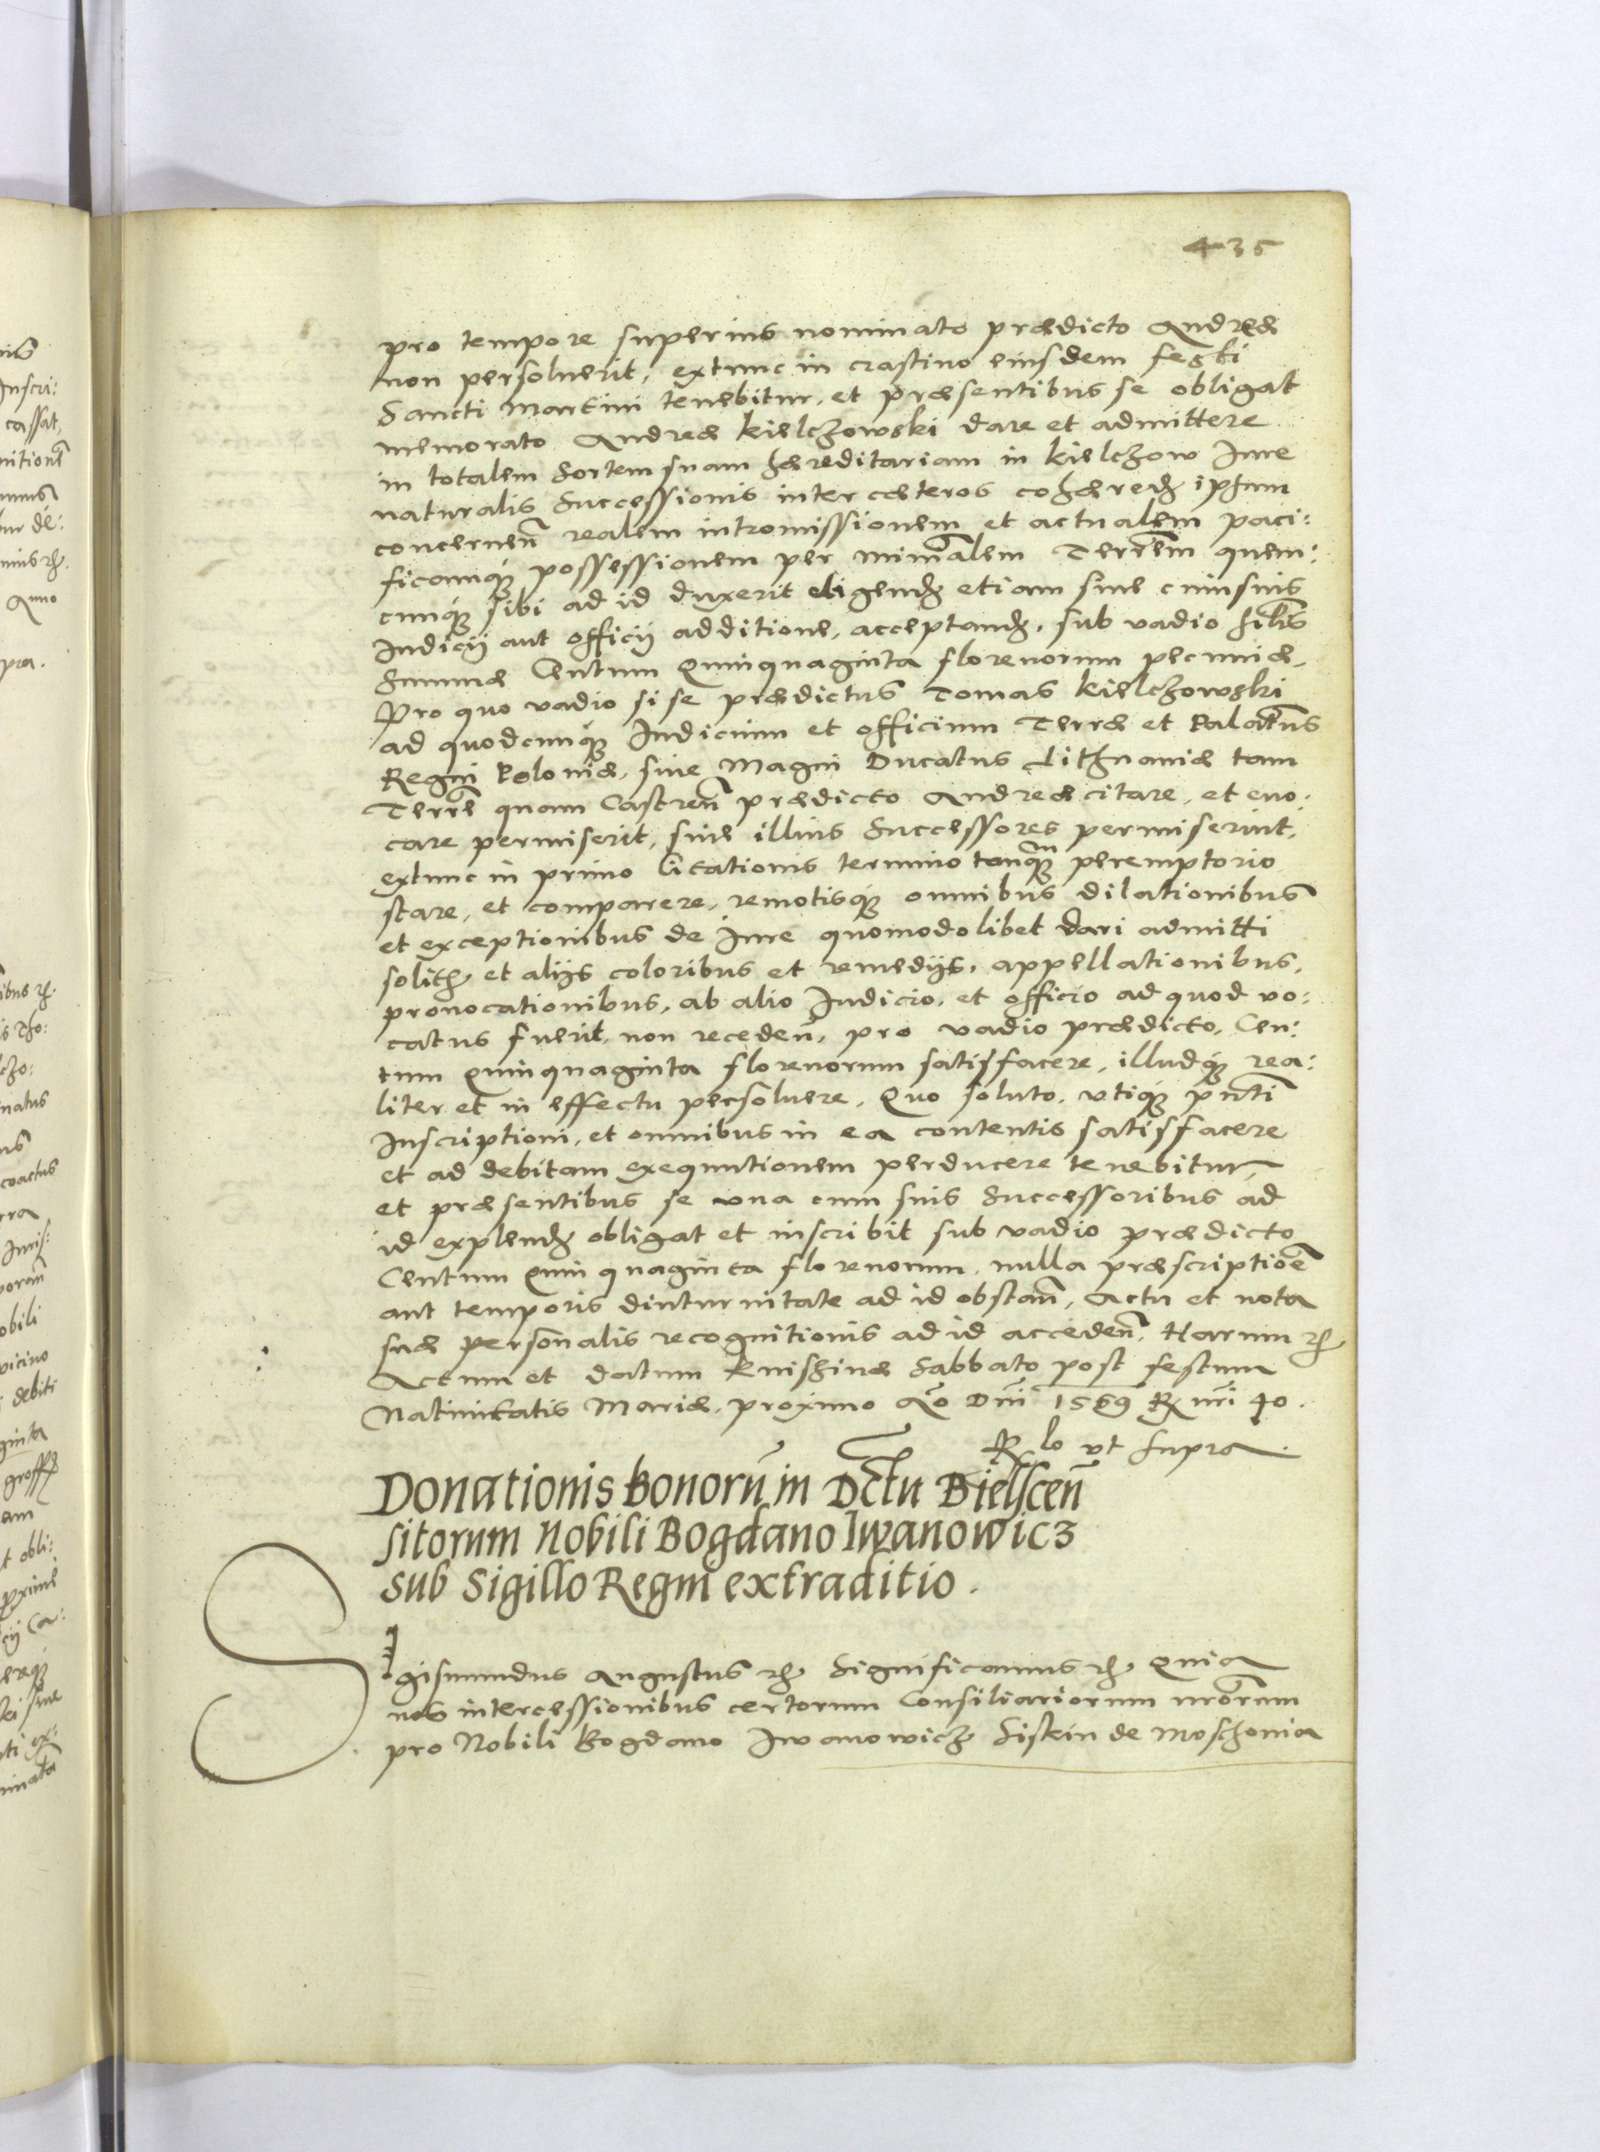 435
pro tempore superius nominato prædicto Andreæ
non persoluerit, extunc in crastino eiusdem festi
Sancti Martini tenebitur, et præsentibus se obligat
memorato Andreæ Kielczowski dare et admittere
in totalem Sortem suam hæreditariam in Kielczow Iure
naturalis Successionis inter cæteros cohæredꝫ ipsum
concernen̄ realem intromissionem et actualem paci:
ficamq́ꝫ possessionem per minr̃alem Terrēm quem:
cunq́ꝫ sibi ad id duxerit eligendꝫ etiam siue cuiusuis
Iudicij aut officij additione, acceptandꝫ, sub vadio similis
Summæ Centum Quinquaginta florenorum pecuniæ,
Pro quo vadio si se prædictus Tomas Kielczowski
ad quodcunq́ꝫ Iudicium et officium Terræ et Palatn̄us
Regni Poloniæ, siue Magni Ducatus Lithuaniæ tam
Terrē quam Castren̄ prædicto Andreæ citare, et euo:
care permiserit, siue illius Successores permiserint,
extunc in primo Citationis termino tanq̃ꝫ peremptorio
stare, et comparere, remotisq́ꝫ omnibus dilationibus
et exceptionibus de Iure quomodolibet dari admitti
solitꝫ et alijs coloribus et remedijs, appellationibus,
prouocationibus, ab alio Iudicio, et officio ad quod vo:
catus fuerit, non receden̄, pro vadio prædicto, Cen:
tum quinquaginta florenorum satisfacere, illudq́ꝫ rea:
liter et in effectu persoluere, Quo soluto, vtiq́ꝫ pn̄ti
Inscriptioni, et omnibus in ea contentis satisfacere
et ad debitam exequutionem perducere tenebitur,
et præsentibus se vna cum suis Successoribus ad
id explendꝫ obligat et inscribit sub vadio prædicto
Centum quinquaginta florenorum, nulla præscriptiōe
aut temporis diuturnitate ad id obstan̄, Actu et nota
suæ personalis recognitionis ad id acceden̄, Harum ꝛc̄
Actum et datum Knishinæ Sabbato post festum
Natiuitatis Mariæ, proximo Aō Dnī 1569 R nr̄i 40.
R lo vt supra.
Donationis Bonorū in Dctu Bielscen̄
sitorum Nobili Bogdano Iwanowicz
sub Sigillo Regni extraditio.
Sigismundus Augustus ꝛc̄ Significamus ꝛc̄ Quia
nos intercessionibus certorum Consiliariorum nrōrum
pro Nobili Bogdano Iwanowicz Sistein de Moschonia